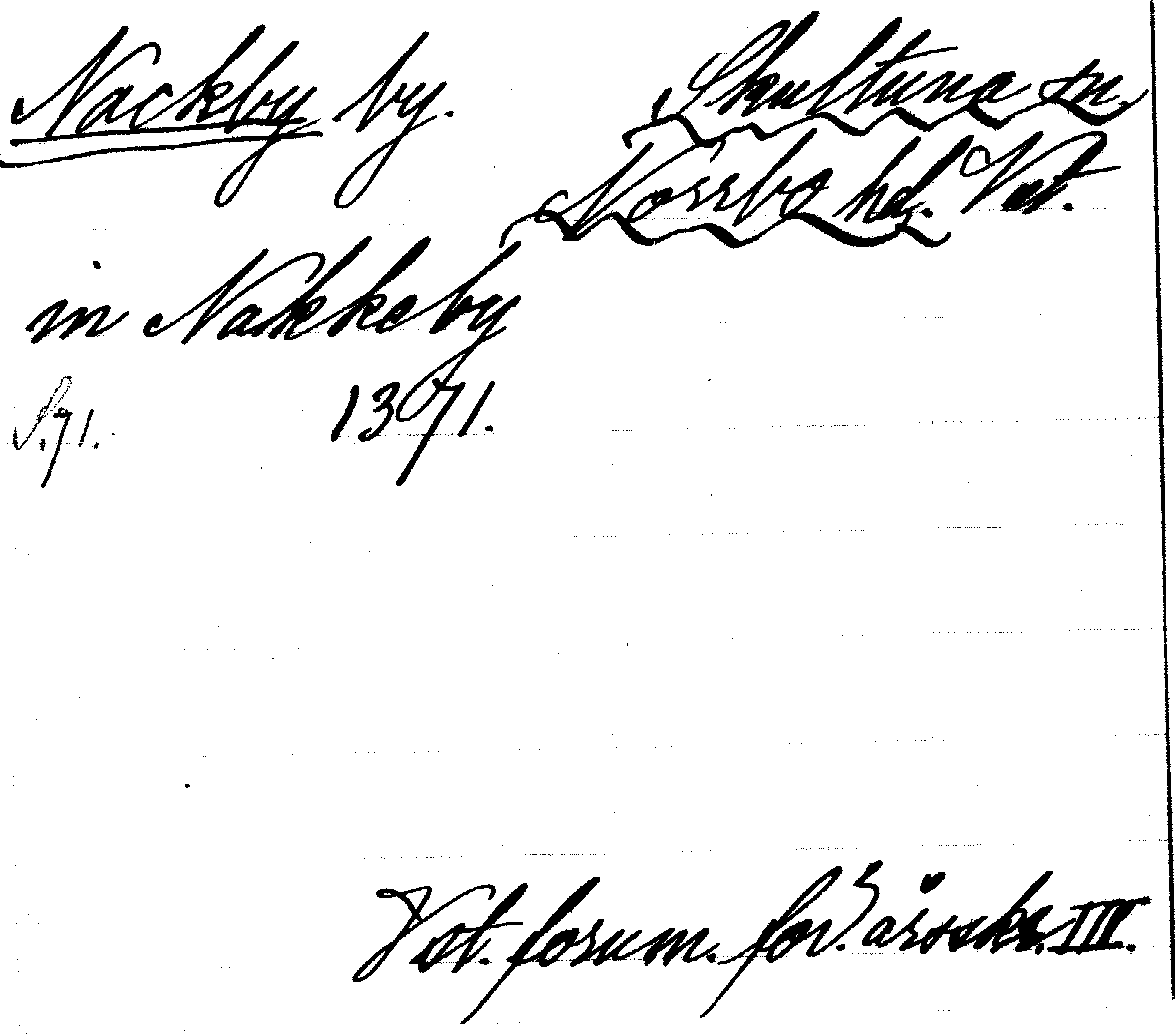 Nackby by. Skultuna sn.
Norrbo hd. Vst.
in Nakkeby
S. 71. 1371.
Vst. fornm. för:s årsskr. III.